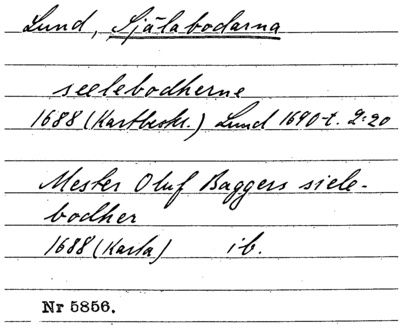 Lund, Själabodarna
seelebodherne
1688 (Kartbeskr.) Lund 1690-t. 2:20
Mester Oluf Baggers siele-
bodher
1688 (Karta) ib.
Nr 5856.